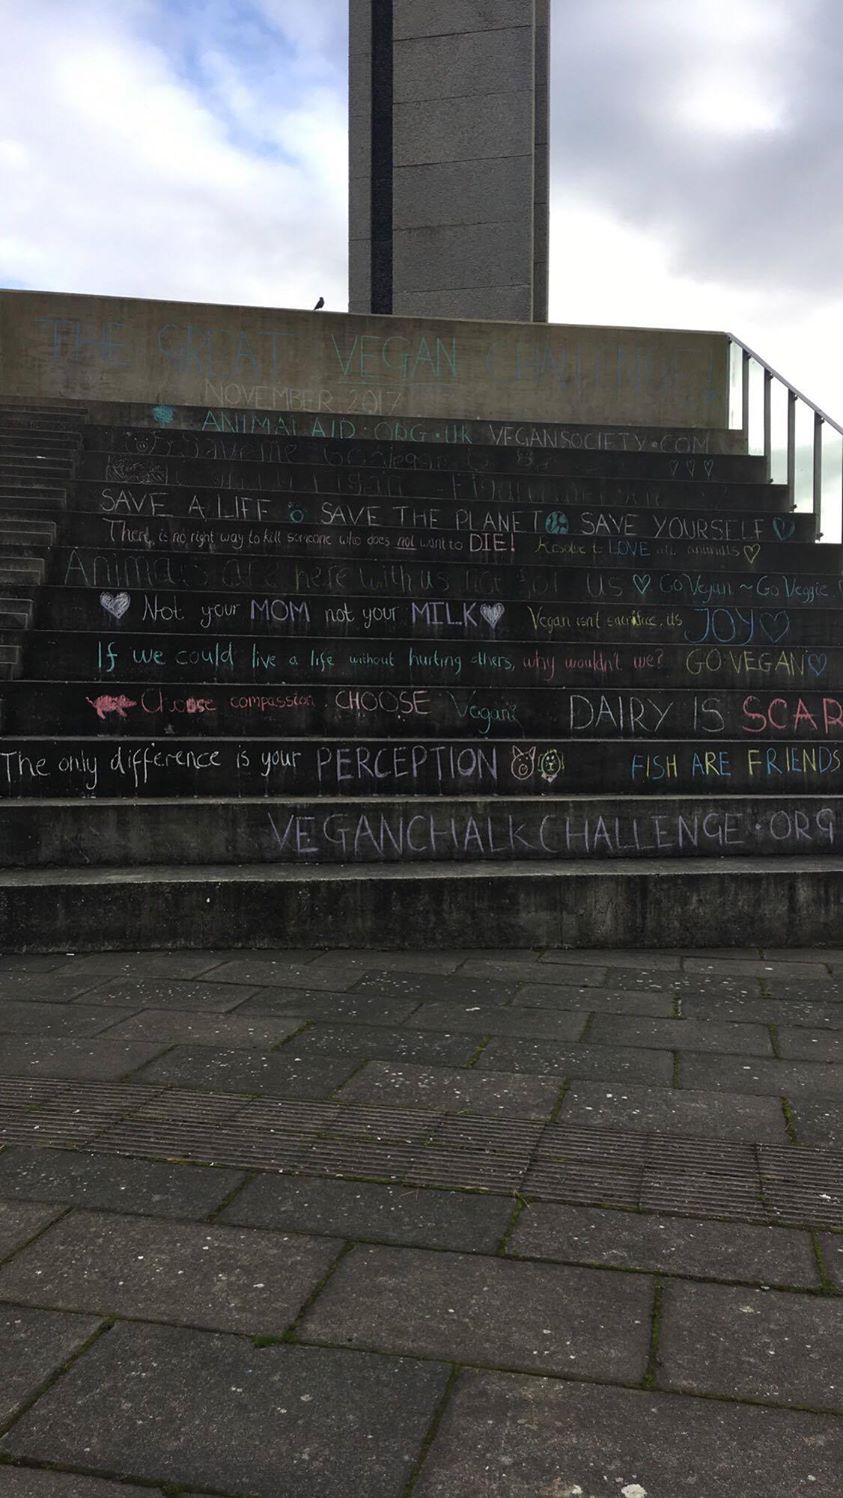 THE GREAT VEGAN CHALLENGE!
NOVEMBER 2017
ANIMALAID.ORG.UK VEGANSOCIETY.COM
Save me Go Vegan
SAVE A LIFE SAVE THE PLANET SAVE YOURSELF
There is no right way to kill someone who does not want to DIE! Resolve to LOVE all animals
Animals are here with us not for US Go Vegan ~ Go Veggie
Not your MOM not your MILK Vegan isn't sacrifice, its JOY
If we could live a life without hurting others, why wouldn't we? GO VEGAN
Choose compassion. CHOOSE Vegan! DAIRY IS SCAR
The only difference is your PERCEPTION FISH ARE FRIENDS
VEGANCHALKCHALLENGE.ORG